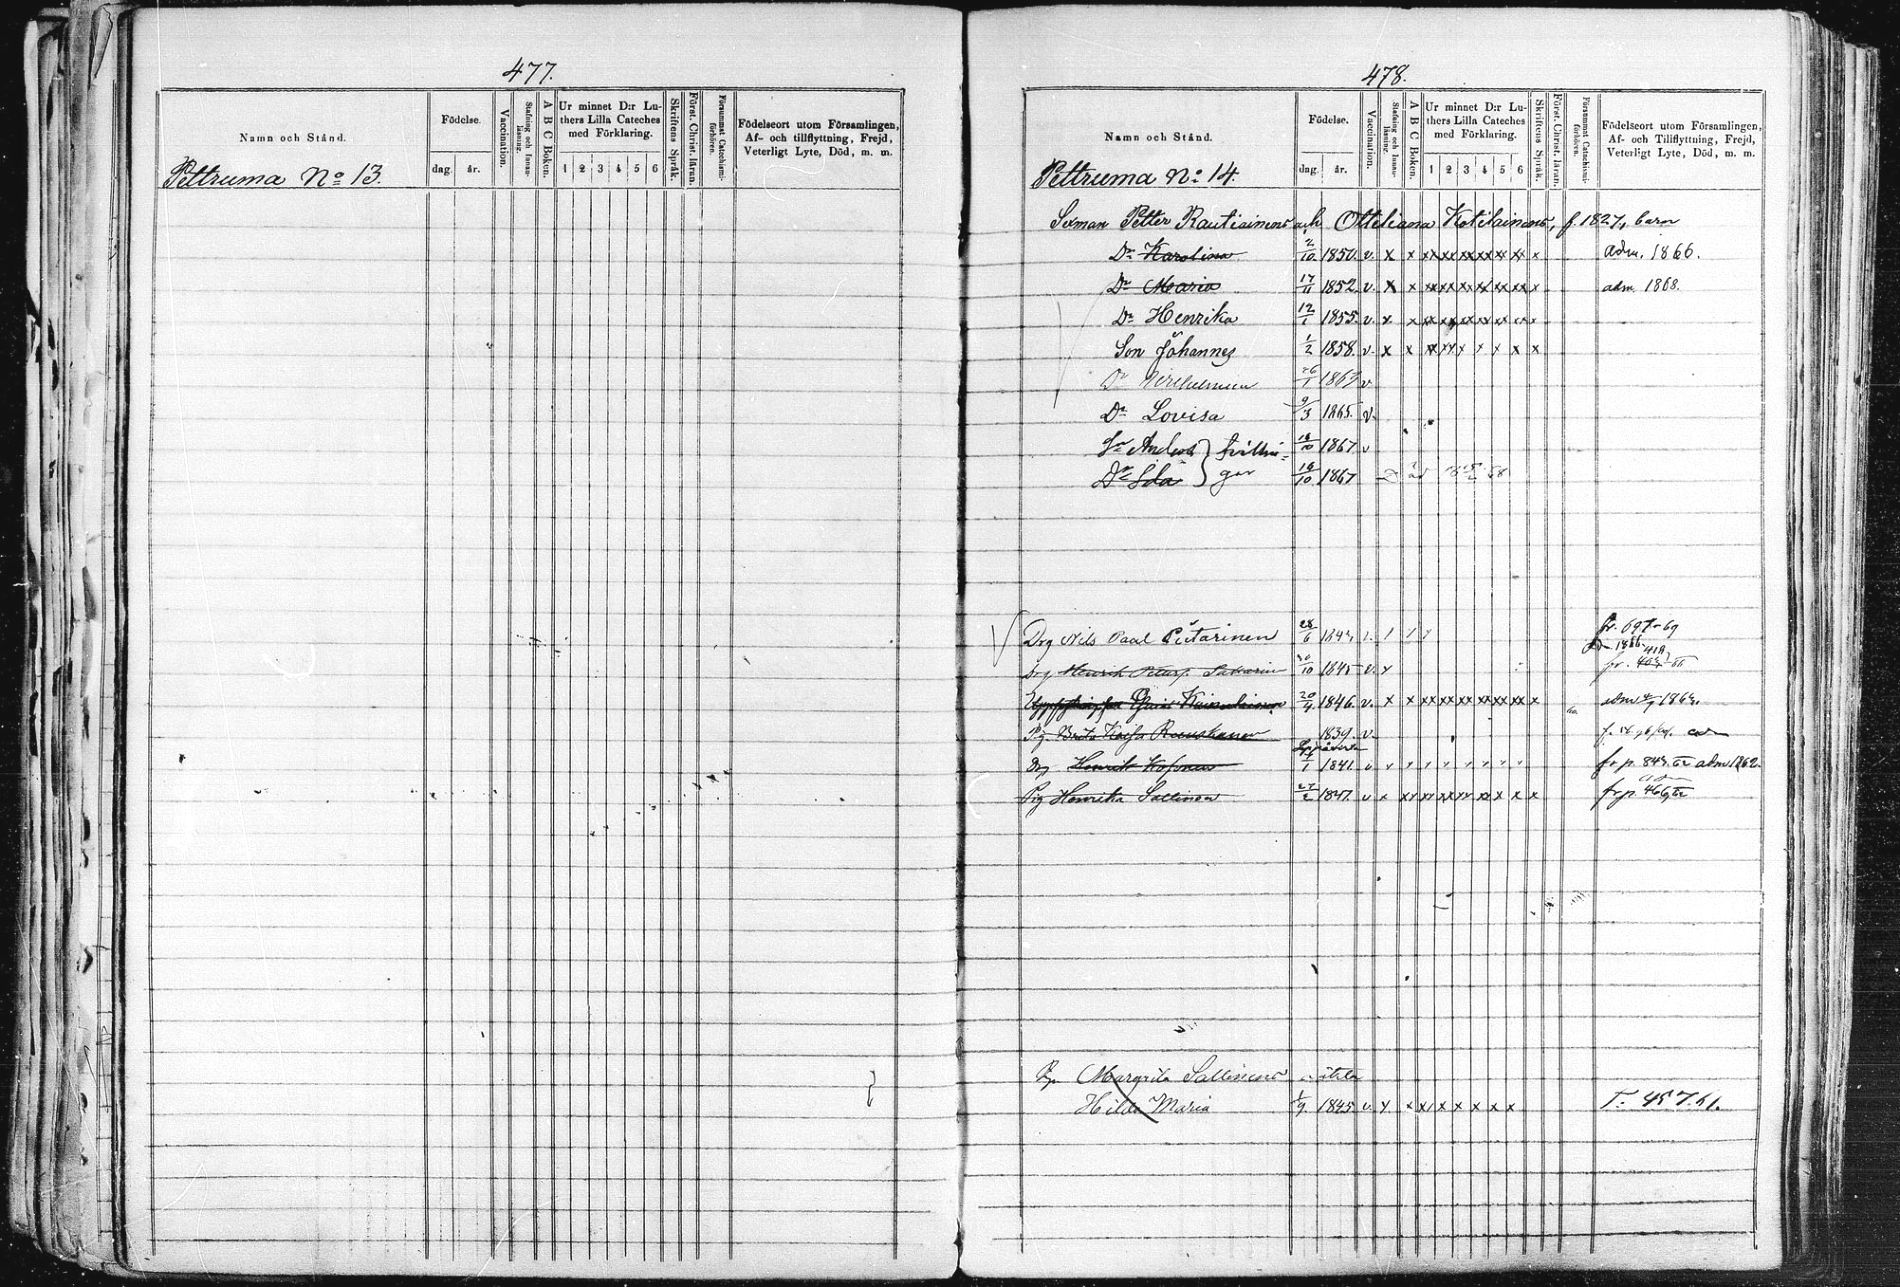 477.
Namn och Stånd.
Födelse.
dag. år.
Vaccination.
Stafning och Innanläsning.
A B C Boken.
Ur minnet D:r Luthers Lilla Cateches med Förklaring.
1 2 3 4 5 6
Skriftens Språk.
Förest. Christ. läran.
Försummat Catechismiförhören.
Födelseort utom Församlingen,
Af- och tillflyttning, Frejd,
Veterligt Lyte, Död, m. m.
Pettruma No 13.
478.
Namn och Stånd.
Födelse.
dag. år.
Vaccination.
Stafning och Innanläsning.
A B C Boken.
Ur minnet D:r Luthers Lilla Cateches med Förklaring.
1 2 3 4 5 6
Skriftens Språk.
Förest. Christ. läran.
Försummat Catechismiförhören.
Födelseort utom Församlingen,
Af- och Tillflyttning, Frejd,
Veterligt Lyte, Död, m. m.
Pettruma No 14.
Sexman Petter Rautiainens och Otteliana Kotilainens, f. 1827, barn
Dr Karolina 2/10 1850. v. x x xx xx xx xx xx xx x adm. 1866.
Dr Maria 17/11 1852 v. x x xx xx xx xx xx xx x adm. 1868.
Dr Henrika 12/1 1855. v. x x xx xx xx x x x x
Son Johannes 1/2 1858. v. x x x xx x x x x x
Dr 26/1 1863 v.
Dr Lovisa 9/3 1865. v.
Sn Anders } tvillin- 18/10 1867 v
Dr Ida } gar 18/10 1867
Drg Nils Paal 28/6 fr. 697-69
Drg Henrik 30/10 1845 v. x
Kainulainen 20/4 1846. v. x x xx xx xx xx xx xx x adm 1863.
Pig Brita Kaisa Ruuskanen 1839 v.
Drg Henrik 1841 v fr p. 843. 62 adm 1862
Pig Henrika Sallinen 27/2 1847. v x xx xx xx xx xx x x x fr p. 466, 62
Margrita Sallinens
Hilda Maria 1/9 1845 v. x x xx x x x x x T. 457. 61.